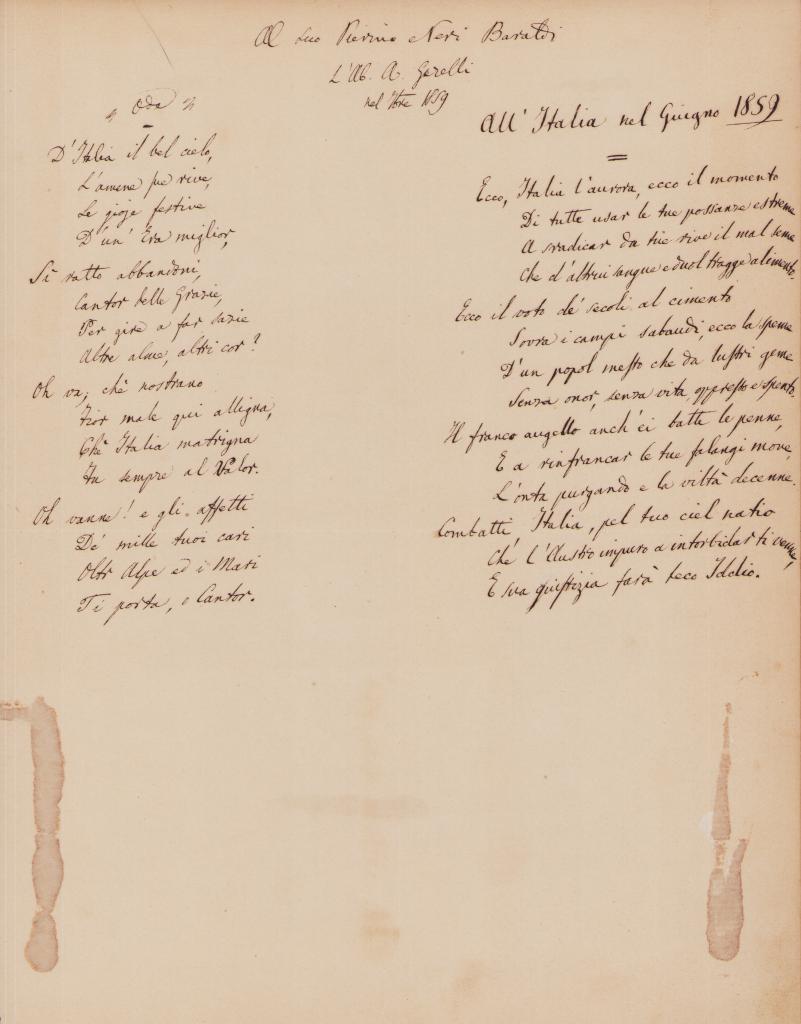 Al suo Pierino e Neri Baraldi
L'Ab. A. Gerelli
nel 7bre 1859
Oda
D'Italia il bel cielo,
L'amene sue rive,
Le gioje festive
D'un' Era miglior,
Sì ratto abbandoni,
Cantor delle Grazie,
Per gire a far sazie
Altre alme, altri cor?
Oh va; chè nostrano
Fior male qui alligna,
Chè Italia matrigna
Fu sempre al Valor.
Oh vanne! e gli affetti
De' mille tuoi cari
Oltr' Alpe ed i Mari
Ti porta, o Cantor.
All' Italia nel Giugno 1859
Ecco, Italia l'aurora, ecco il momento
Di tutte usar le tue possanze estreme
A sradicar da tue rive il mal seme
Che d'altrui sangue e duol tragge alimento.
Ecco il voto de' secoli al cimento
Sovra i campi sabaudi, ecco la speme
D'un popol mesto che da lustri geme
Senza onor, senza vita, oppresso e spento.
Il franco augello anch' ei batte le penne,
E a rinfrancar le tue falangi move,
L'onta purgando e la viltà decenne.
Combatti, Italia, pel tuo ciel natio
Chè l'Austro impuro a intorbidar ti venne,
E sua giustizia farà teco Iddio.